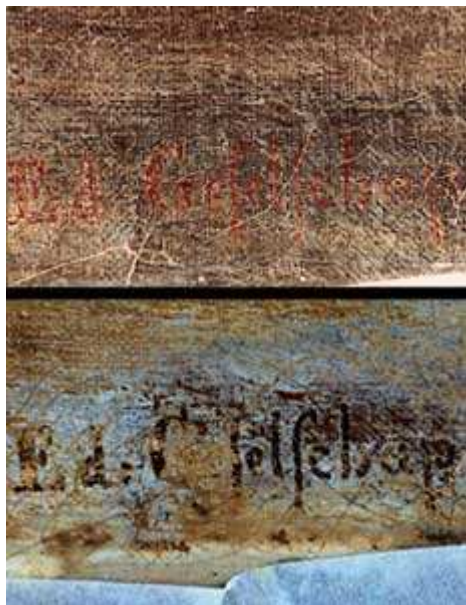 Ed. Geſelſchap
Ed. Geſelſchap